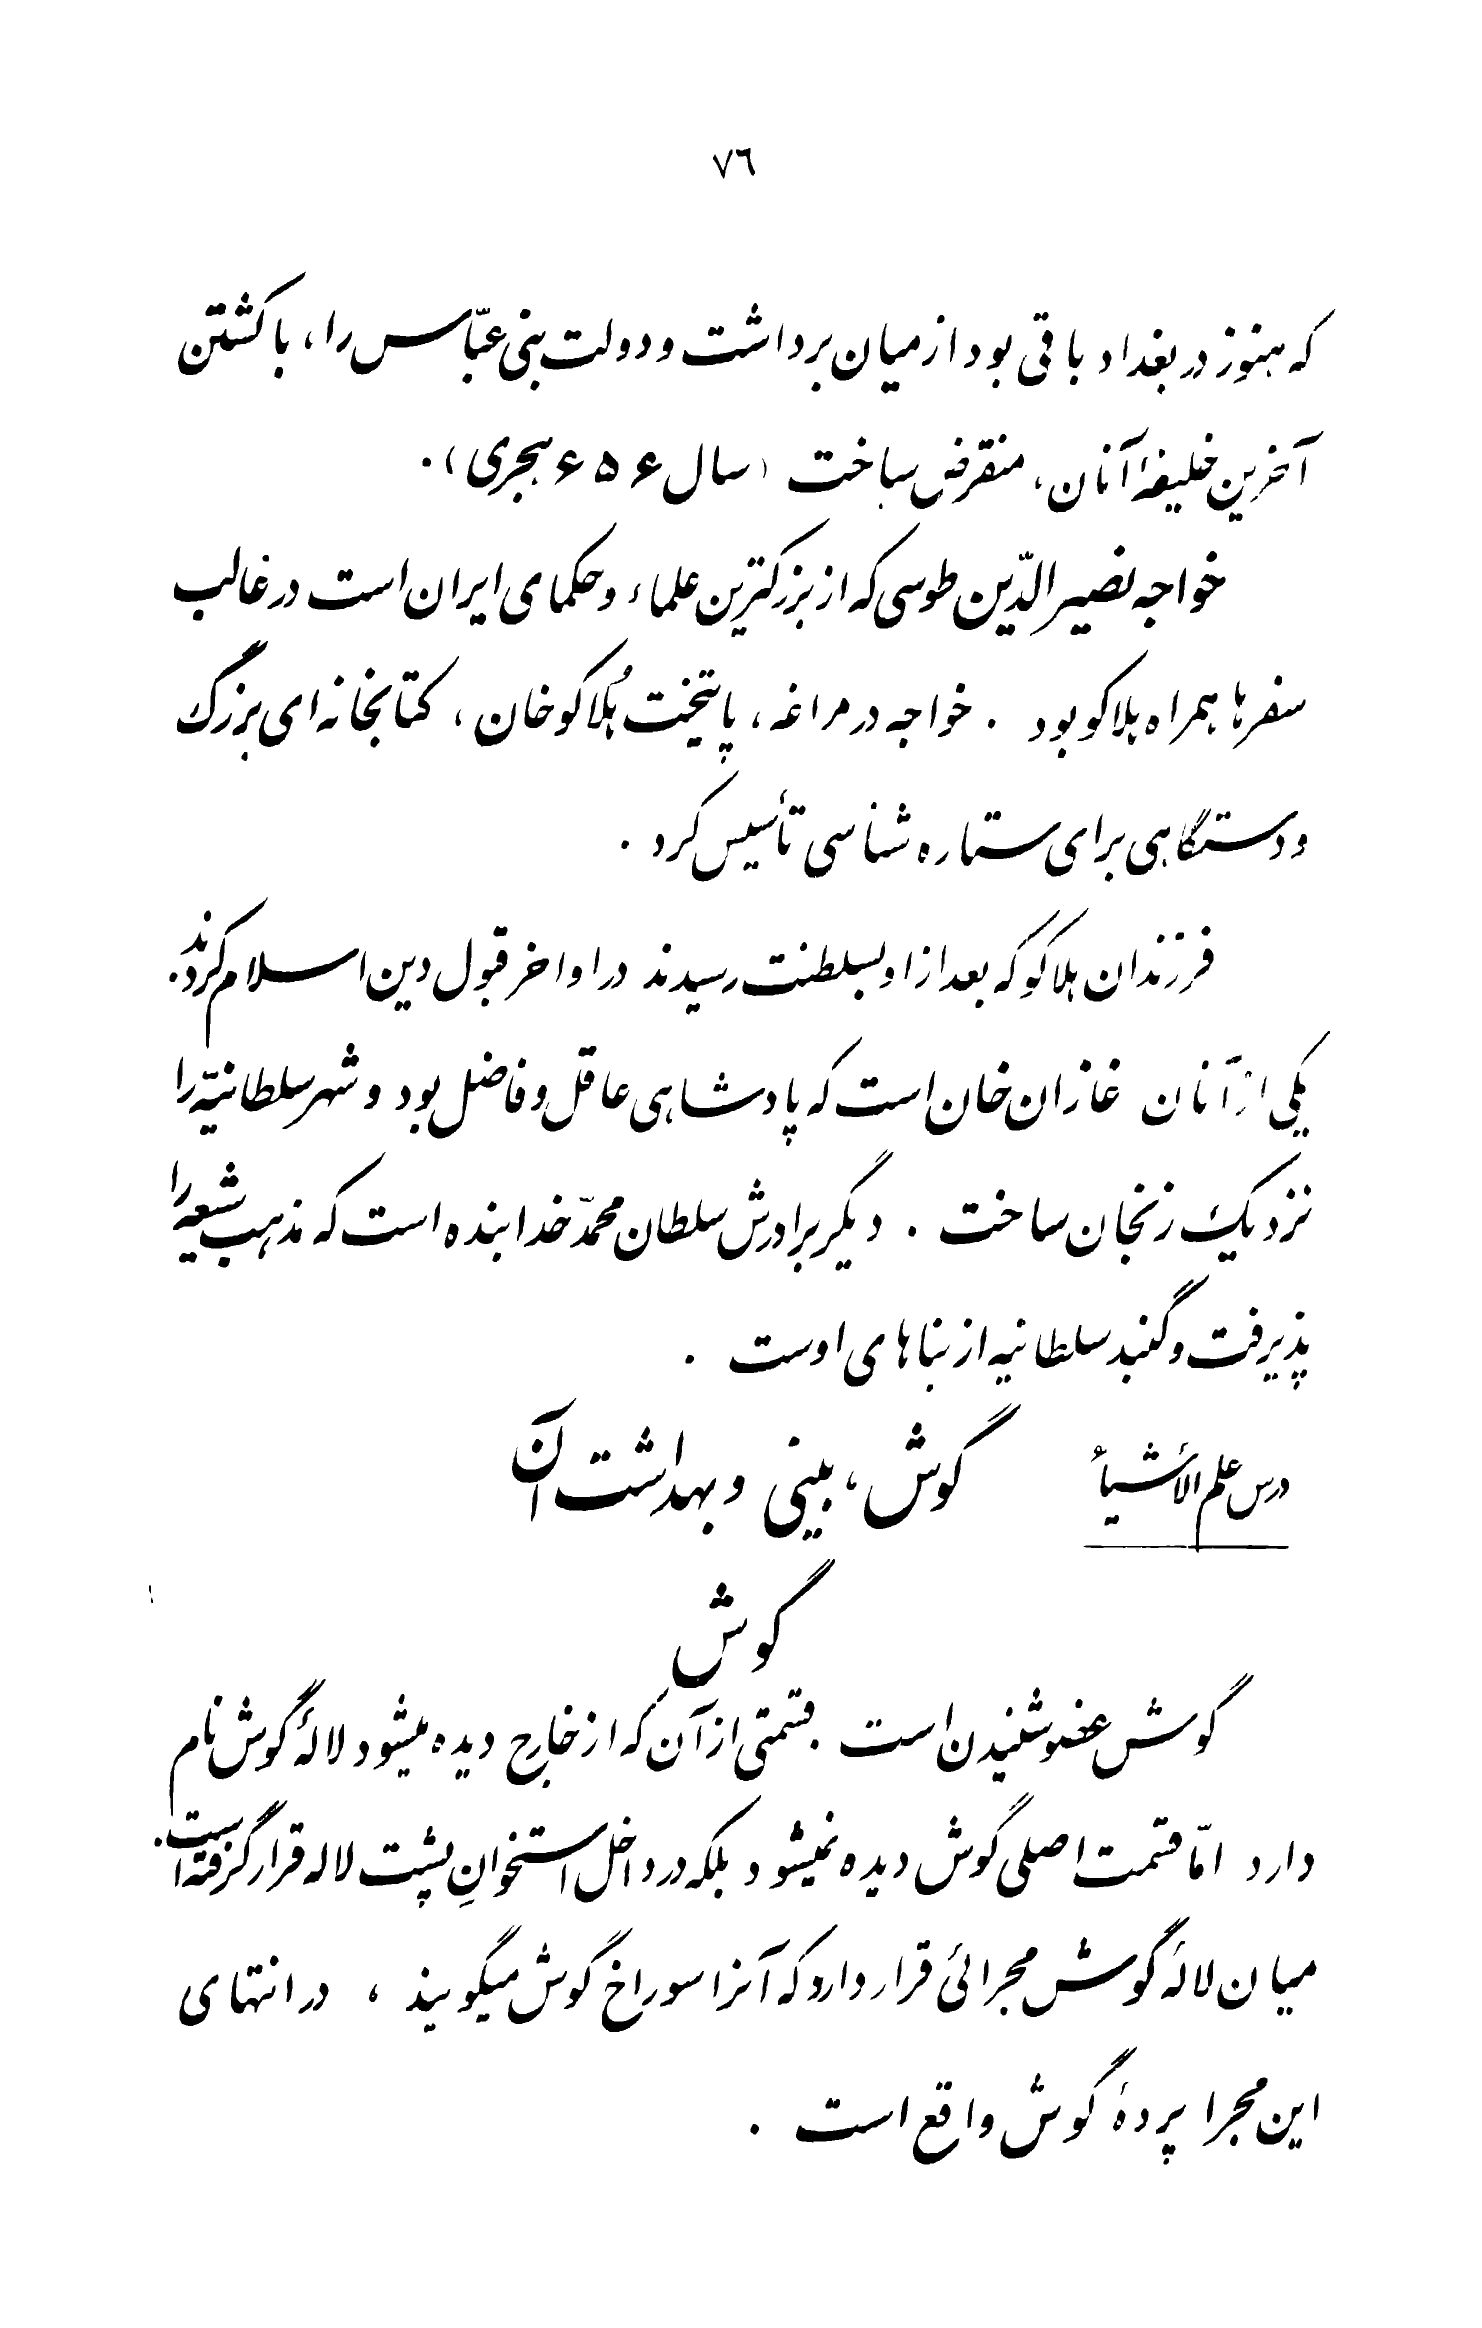 ۷٦
که هنوز در بغداد باقی بود از میان برداشت و دولت بنی عبّاس را، با کشتن
آخرین خلیفهٔ آنان، منقرض ساخت (سال ۶۵۶ هجری).
خواجه نصیر الدّین طوسی که از بزرگترین علماء و حکمای ایران است در غالب
سفرها همراه هلاکو بود . خواجه در مراغه، پایتخت هُلاکو خان، کتابخانه ای بزرگ
و دستگاهی برای ستاره شناسی تأسیس کرد .
فرزندان هلاکو که بعد از او بسلطنت رسیدند در اواخر قبول دین اسلام کردند.
یکی از آنان غازان خان است که پادشاهی عاقل و فاضل بود و شهر سلطانیّه را
نزدیک زنجان ساخت . دیگر برادرش سلطان محمّد خدابنده است که مذهب شیعه را
پذیرفت و گنبد سلطانیه از بناهای اوست .
درس علم الأشیاء گوش، بینی و بهداشت آن
گوش
گوش عضو شنیدن است . قسمتی از آن که از خارج دیده میشود لالهٔ گوش نام
دارد امّا قسمت اصلی گوش دیده نمیشود بلکه در داخل استخوانِ پشت لاله قرار گرفته است.
میان لالهٔ گوش مجرائی قرار دارد که آنرا سوراخ گوش میگویند ، در انتهای
این مجرا پردهٔ گوش واقع است .